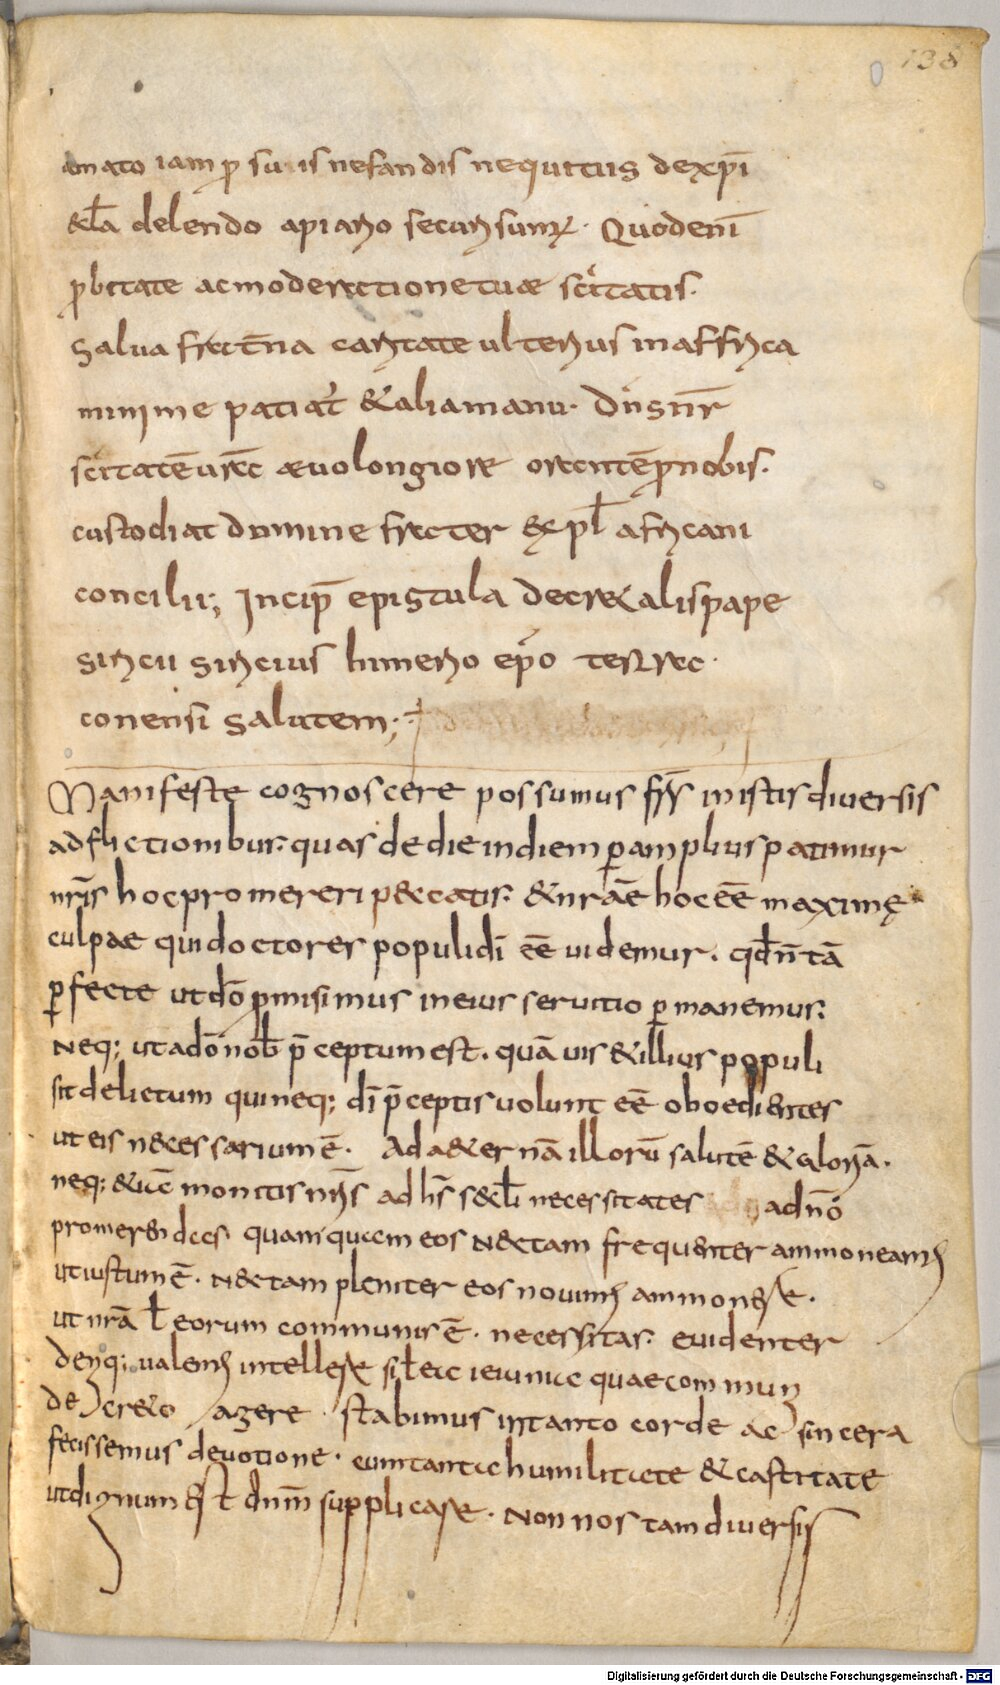 138
amato iam ꝑ suis nefandis nequitiis de xp̄i
&cl̄a delendo apiario securi sumꝰ. Quod eni
ꝓbitate ac moderatione tuae sc̄itatis.
Salua frat̄na caritate ulterius in affrica
minime patiat̄ & alia manu. Dn̄s nr̄
sc̄itatē urā aeuo longiore orantē ꝓ nobis.
custodiat domine frater Expl̄ africani
concilii; Incip̄ epistula decretalis pape
siricii siricius himerio ep̄o terrac
conensi salutem;
Manifeste cognoscere possumus fr̄s in istis diuersis
adflictionibus. quas de die in diem ꝑ amplius patimur
nr̄is hoc promereri peccatis. & nrāe hoc eē maximę
culpae qui doctores populi dī eē uidemur. qd̄ n̄ tā
ꝑfecte ut dō ꝓmisimus in eius seruitio ꝑmanemus.
Neq; ut a dō nob̄ p̄ceptum est. quā uis & illius populi
sit delictum qui neq; dī p̄ceptis uolunt eē oboedientes
ut eis necessarium ē. Ad aeter nā illorū salutē & gloriā.
neq; & iā monitis nr̄is ad hs̄ saecl̄i necessitates ad nō
promerendas quam quam eos nec tam frequenter ammoneamꝰ
ut iustum ē. nec tam pleniter eos nouimꝰ ammonere.
ut nrā l̄ eorum communis ē. necessitas. euidenter
deniq; ualemꝰ intellegere si l̄ ea ieiunia quae commun
decreto agere stabimus in tanto corde ac sincera
fecissemus deuotione. cum tanta humilitate & castitate
ut dignum est dn̄m supplicare. Non nos tam diuersis
Digitalisierung gefördert durch die Deutsche Forschungsgemeinschaft - DFG